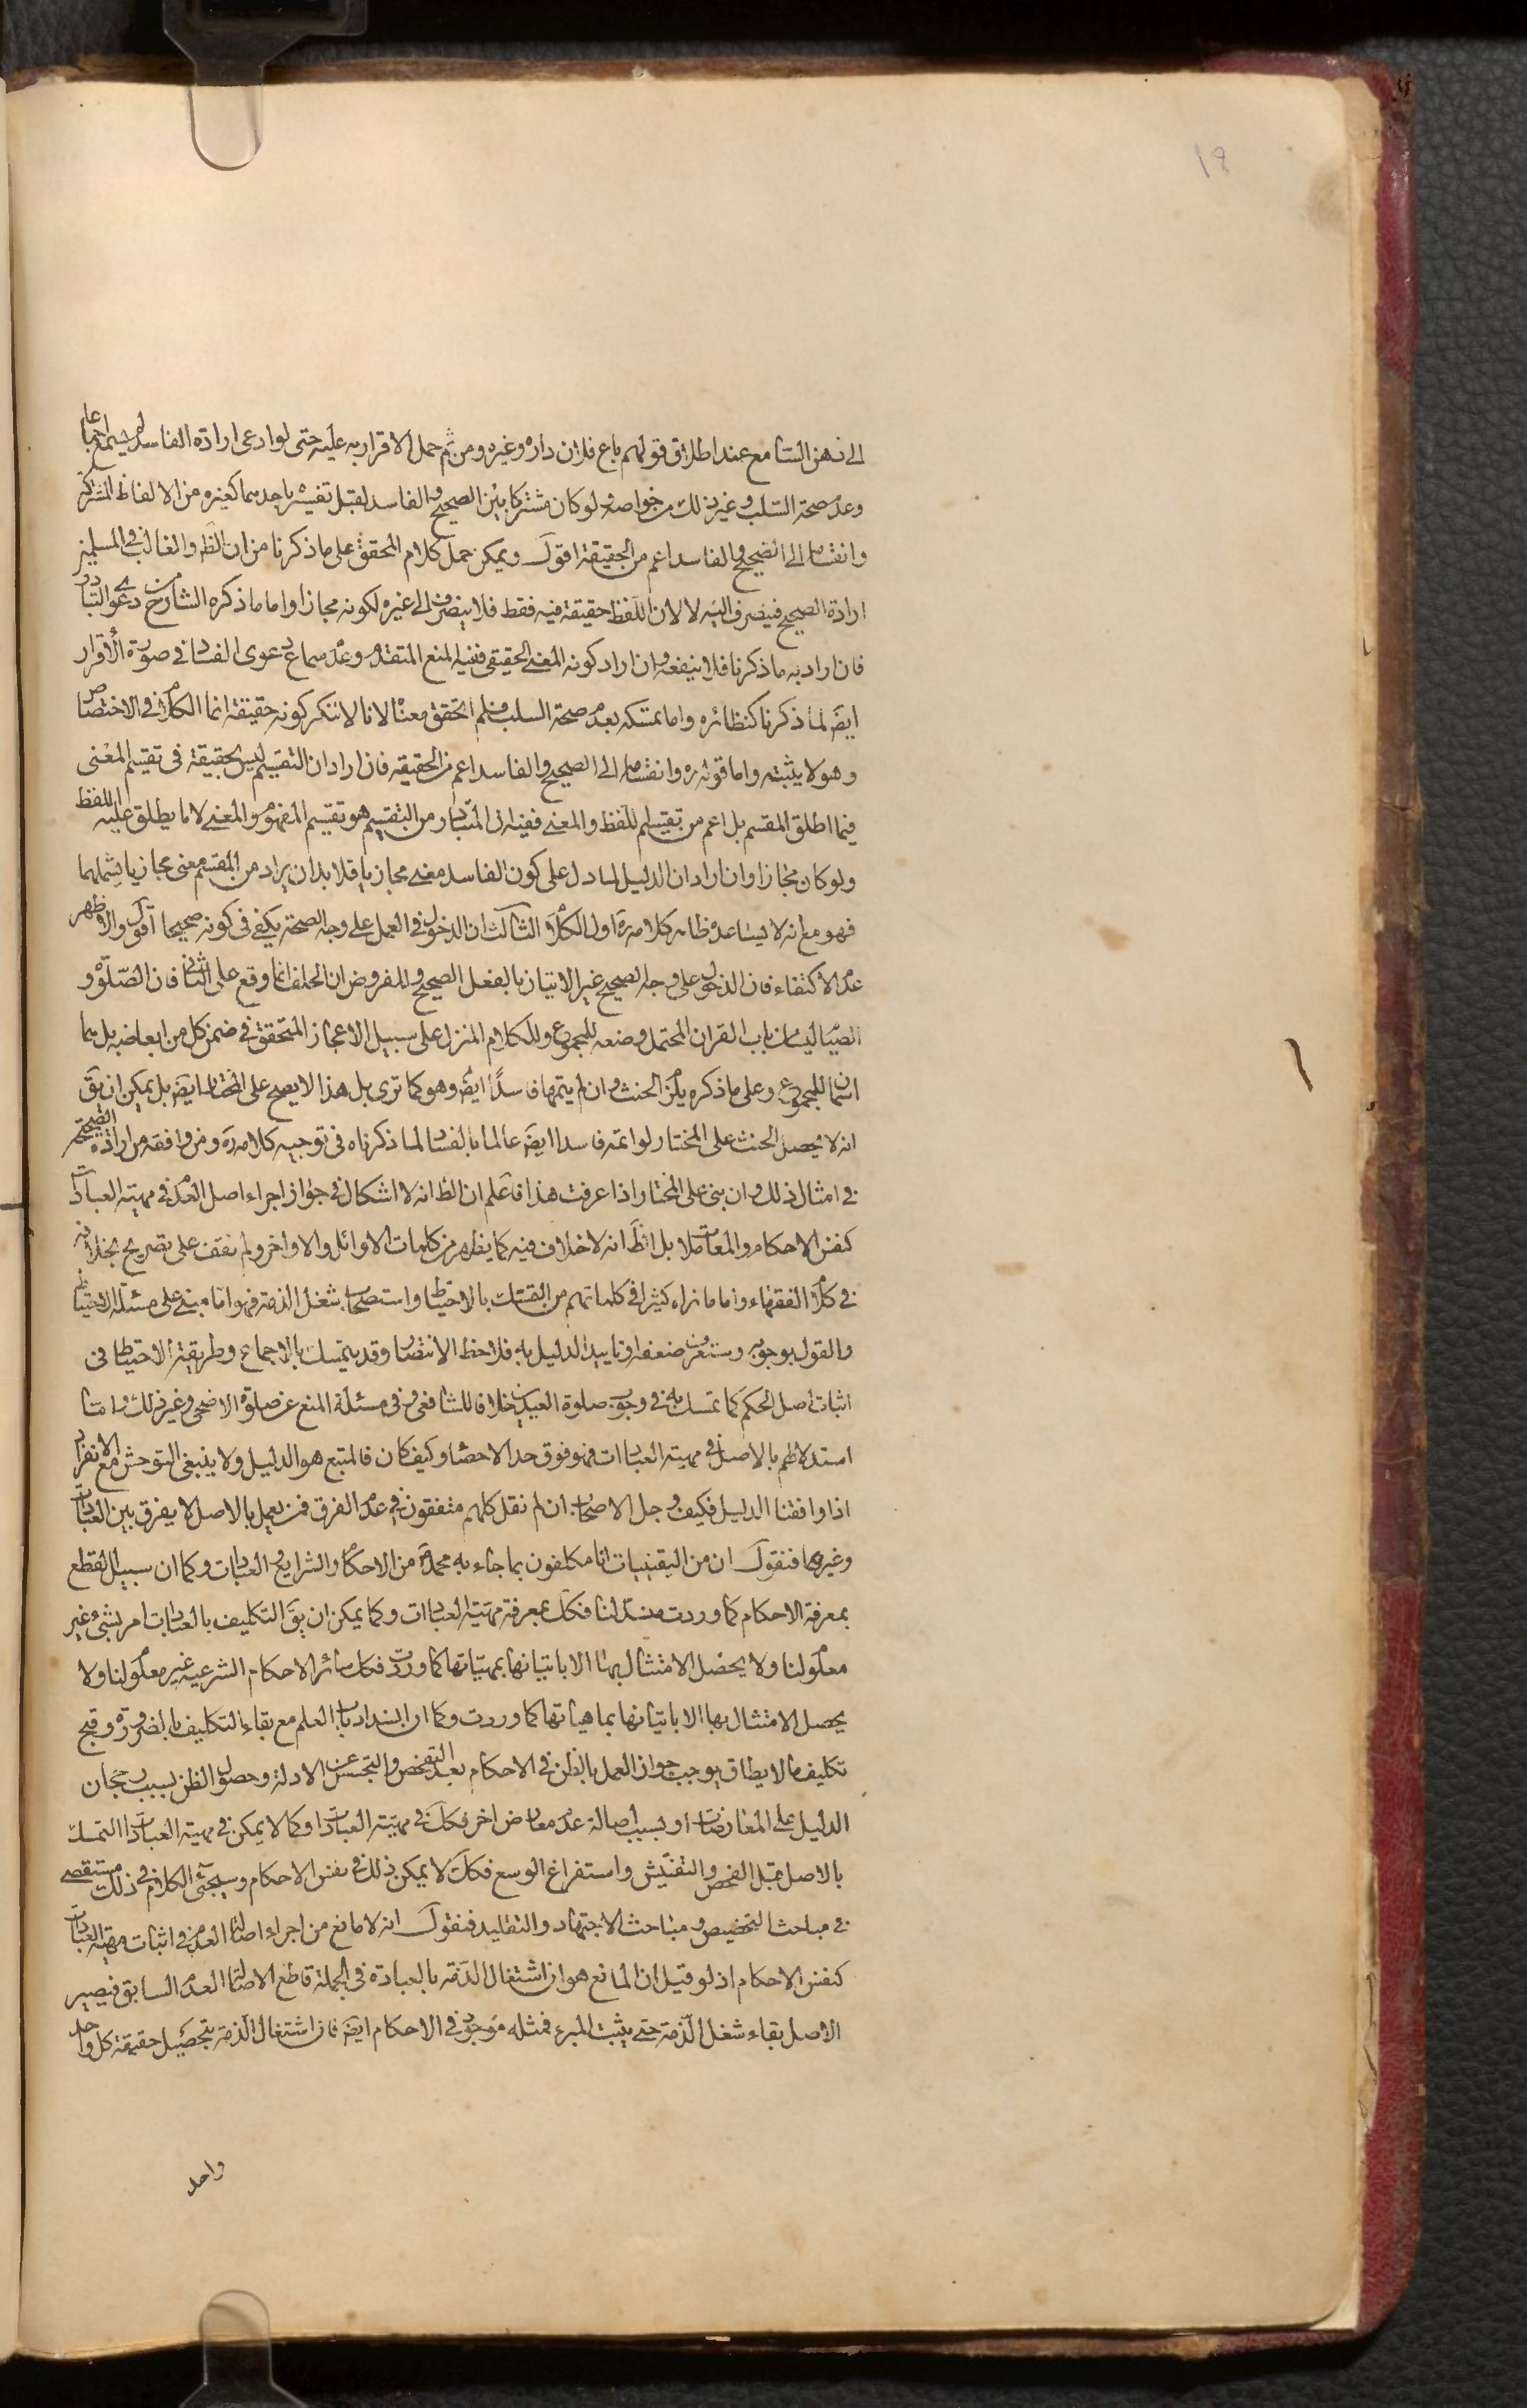 ١٩
الى ذهن السامع عند اطلاق قولهم باع فلان داره وغيره ومن ثم حمل الاقرار به عليه حتى لو ادعى ارادة الفاسد لم يسمع اجماعا
وعدم صحة السلب وغير ذلك من خواصه ولو كان مشتركا بين الصحيح والفاسد لقبل تفسيره باحدهما كغيره من الالفاظ المشتركة
وانقسامه الى الصحيح والفاسد اعم من الحقيقة اقول ويمكن حمل كلام المحقق على ما ذكرنا من ان الظ والغالب في المسلمين
ارادة الصحيح فينصرف اليه لا لان اللفظ حقيقة فيه فقط فلا ينصرف الى غيره لكونه مجازا واما ما ذكره الشارح من دعوى التبادر
فان اراد به ما ذكرنا فلا ينفعه وان اراد كونه المعنى الحقيقي ففيه المنع المتقدم وعدم سماع دعوى الفساد في صورة الاقرار
ايض لما ذكرنا كنظائره واما تمسكه بعدم صحة السلب فلم اتحقق معناه لانا لا ننكر كونه حقيقة انما الكلام في الاختصاص
وهو لا يثبته واما قوله ره وانقسامه الى الصحيح والفاسد اعم من الحقيقه فان اراد ان التقسيم ليس بحقيقة في تقسيم المعنى
فيما اطلق المقسم بل اعم من تقسيم اللفظ والمعنى ففيه ان المتبادر من التقسيم هو تقسيم المفهوم والمعنى لا ما يطلق عليه اللفظ
ولو كان مجازا وان اراد ان الدليل لما دل على كون الفاسد معنى مجازيا فلا بد ان يراد من المقسم معنى مجازيا يشملهما
فهو مع انه لا يساعده ظاهر كلامه ره اول الكلام الثالث ان الدخول في العمل على وجه الصحة يكفي في كونه صحيحا اقول والاظهر
عدم الاكتفاء فان الدخول على وجه الصحيح غير الاتيان بالفعل الصحيح والمفروض ان الحلف انما وقع على الثاني فان الصلوة و
الصيام ليسا من باب القران المحتمل وضعه للمجموع وللكلام المنزل على سبيل الاعجاز المتحقق في ضمن كل من ابعاضه بل هما
اسمان للمجموع وعلى ما ذكره يلزم الحنث وان لم يتمها فاسدًا ايض وهو كما ترى بل هذا لا يصح على المختار ايض بل يمكن ان يق
انه لا يحصل الحنث على المختار لو اتمه فاسدا ايض عالما بالفساد لما ذكرناه في توجيه كلامه ره ومن وافقه من ارادة الصحيحة
في امثال ذلك وان بنى على المختار واذا عرفت هذا فاعلم ان الظ انه لا اشكال في جواز اجراء اصل العدم في مهية العبادات
كنفس الاحكام والمعاملات بل الظ انه لا خلاف فيه كما يظهر من كلمات الاوائل والاواخر ولم نقف على تصريح بخلافه
في كلام الفقهاء واما ما نراه كثيرا في كلماتهم من التمسك بالاحتياط واستصحاب شغل الذمة فهو اما مبني على مسئلة الاحتياط
والقول بوجوبه وستعرف ضعفه او تاييد الدليل به فلاحظ الانتصار وقد يتمسك بالاجماع وطريقة الاحتياط في
اثبات اصل الحكم كما تمسك به في وجوب صلوة العيدين خلافا للشافعي وفي مسئلة المنع عن صلوة الاضحى وغير ذلك واما
استدلالهم بالاصل في مهية العبادات فهو فوق حد الاحصاء وكيف كان فالمتبع هو الدليل ولا ينبغي التوحش مع الانفراد
اذا وافقنا الدليل فكيف وجل الاصحاب ان لم نقل كلهم متفقون في عدم الفرق فمن يعمل بالاصل لا يفرق بين العبادات
وغيرها فنقول ان من اليقينيات انا مكلفون بما جاء به محمد ص من الاحكام والشرايع العبادات وكما ان سبيل القطع
بمعرفة الاحكام كما وردت منسد لنا فكك بمعرفة مهية العبادات وكما يمكن ان يق التكليف بالعبادات امر بشئ غير
معلوم لنا ولا يحصل الامتثال بها الا باتيانها بمهياتها كما وردت فكك سائر الاحكام الشرعيه غير معلوم لنا ولا
يحصل الامتثال بها الا باتيانها بماهياتها كما وردت وكما ان انسداد باب العلم مع بقاء التكليف بالضرورة وقبح
تكليف ما لا يطاق يوجب جواز العمل بالظن في الاحكام بعد التفحص والتجسس عن الادلة وحصول الظن بسبب رجحان
الدليل على المعارضات او بسبب اصالة عدم معارض اخر فكك في مهية العبادات وكما لا يمكن في مهية العبادات التمسك
بالاصل قبل الفحص والتفتيش واستفراغ الوسع فكك لا يمكن ذلك في نفس الاحكام وسيجئ الكلام في ذلك مستقصى
في مباحث التخصيص ومباحث الاجتهاد والتقليد فنقول انه لا مانع من اجراء اصالة العدم في اثبات مهية العبادات
كنفس الاحكام اذ لو قيل ان المانع هو ان اشتغال الذمة بالعبادة في الجملة قاطع لاصالة العدم السابق فيصير
الاصل بقاء شغل الذمة حتى يثبت المبرء فمثله موجود في الاحكام ايض فان اشتغال الذمة بتحصيل حقيقة كل واحد
واحد